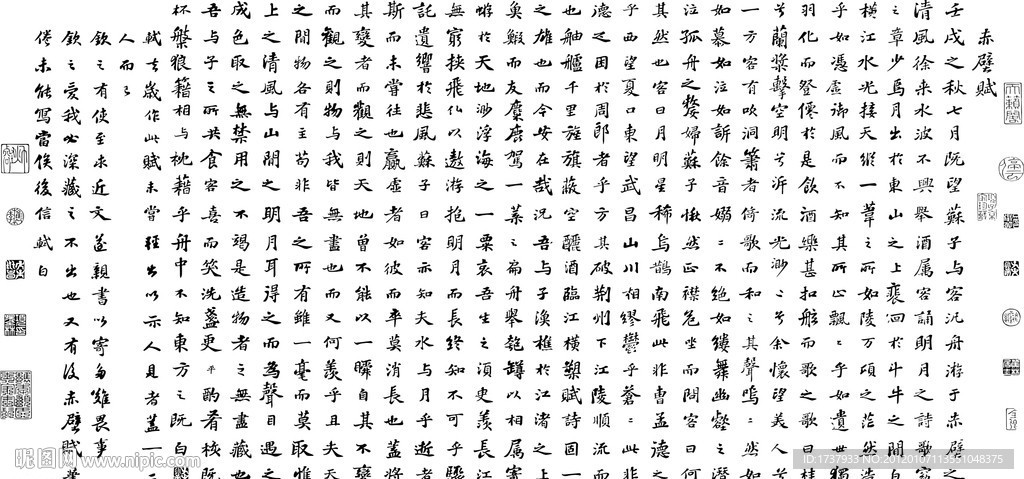 赤壁賦
壬戌之秋七月既望蘇子与客泛舟游于赤壁之
清風徐来水波不興舉酒属客誦明月之詩歌窈
之章少焉月出於東山之上裴回於斗牛之間
橫江水光接天縱一葦之所如陵万頃之茫然浩
乎如憑虛御風而不知其所止飄〻乎如遺世獨
羽化而登僊於是飲酒樂甚扣舷而歌之歌曰桂
兮蘭槳擊空明兮泝流光渺〻兮余懷望美人兮
一方客有吹洞簫者倚歌而和之其聲嗚
如慕如泣如訴餘音嫋〻不絕如縷舞幽壑之潛
泣孤舟之嫠婦蘇子愀然正襟危坐而問客曰何
其然也客曰月明星稀烏鵲南飛此非曹孟德
乎西望夏口東望武昌山川相繆鬱乎蒼〻此非
德之困於周郎者乎方其破荊州下江陵順流而
也舳艫千里旌旗蔽空釃酒臨江橫槊賦詩固一
之雄也而今安在哉況吾与子漁樵於江渚之上
魚鰕而友麋鹿駕一葉之扁舟舉匏罇以相属寄
蜉於天地渺浮海之一粟哀吾生之須臾羨長江
無窮挾飛仙以遨游抱明月而長終知不可乎驟
託遺響於悲風蘇子曰客亦知夫水与月乎逝者
斯而未嘗往也贏虛者如彼而卒莫消長也蓋將
其變者而觀之則天地曾不能以一瞬自其不變
而觀之則物与我皆無盡也而又何羨乎且夫天
之間物各有主苟非吾之所有雖一毫而莫取惟
上之清風与山間之明月耳得之而為聲目遇之
成色取之無禁用之不竭是造物者之無盡藏也
吾与子之所共食客喜而笑洗盞更酌肴核既
杯槃狼籍相与枕藉乎舟中不知東方之既白
軾去歲作此賦未嘗輕出以示人見者蓋一
人而已
欽之有使至求近文遂親書以寄多難畏事
欽之愛我必深藏之不出也又有後赤壁賦筆
倦未能寫當俟後信軾白
昵图网 www.nipic.com
ID:1737933 NO:20120107113551048375